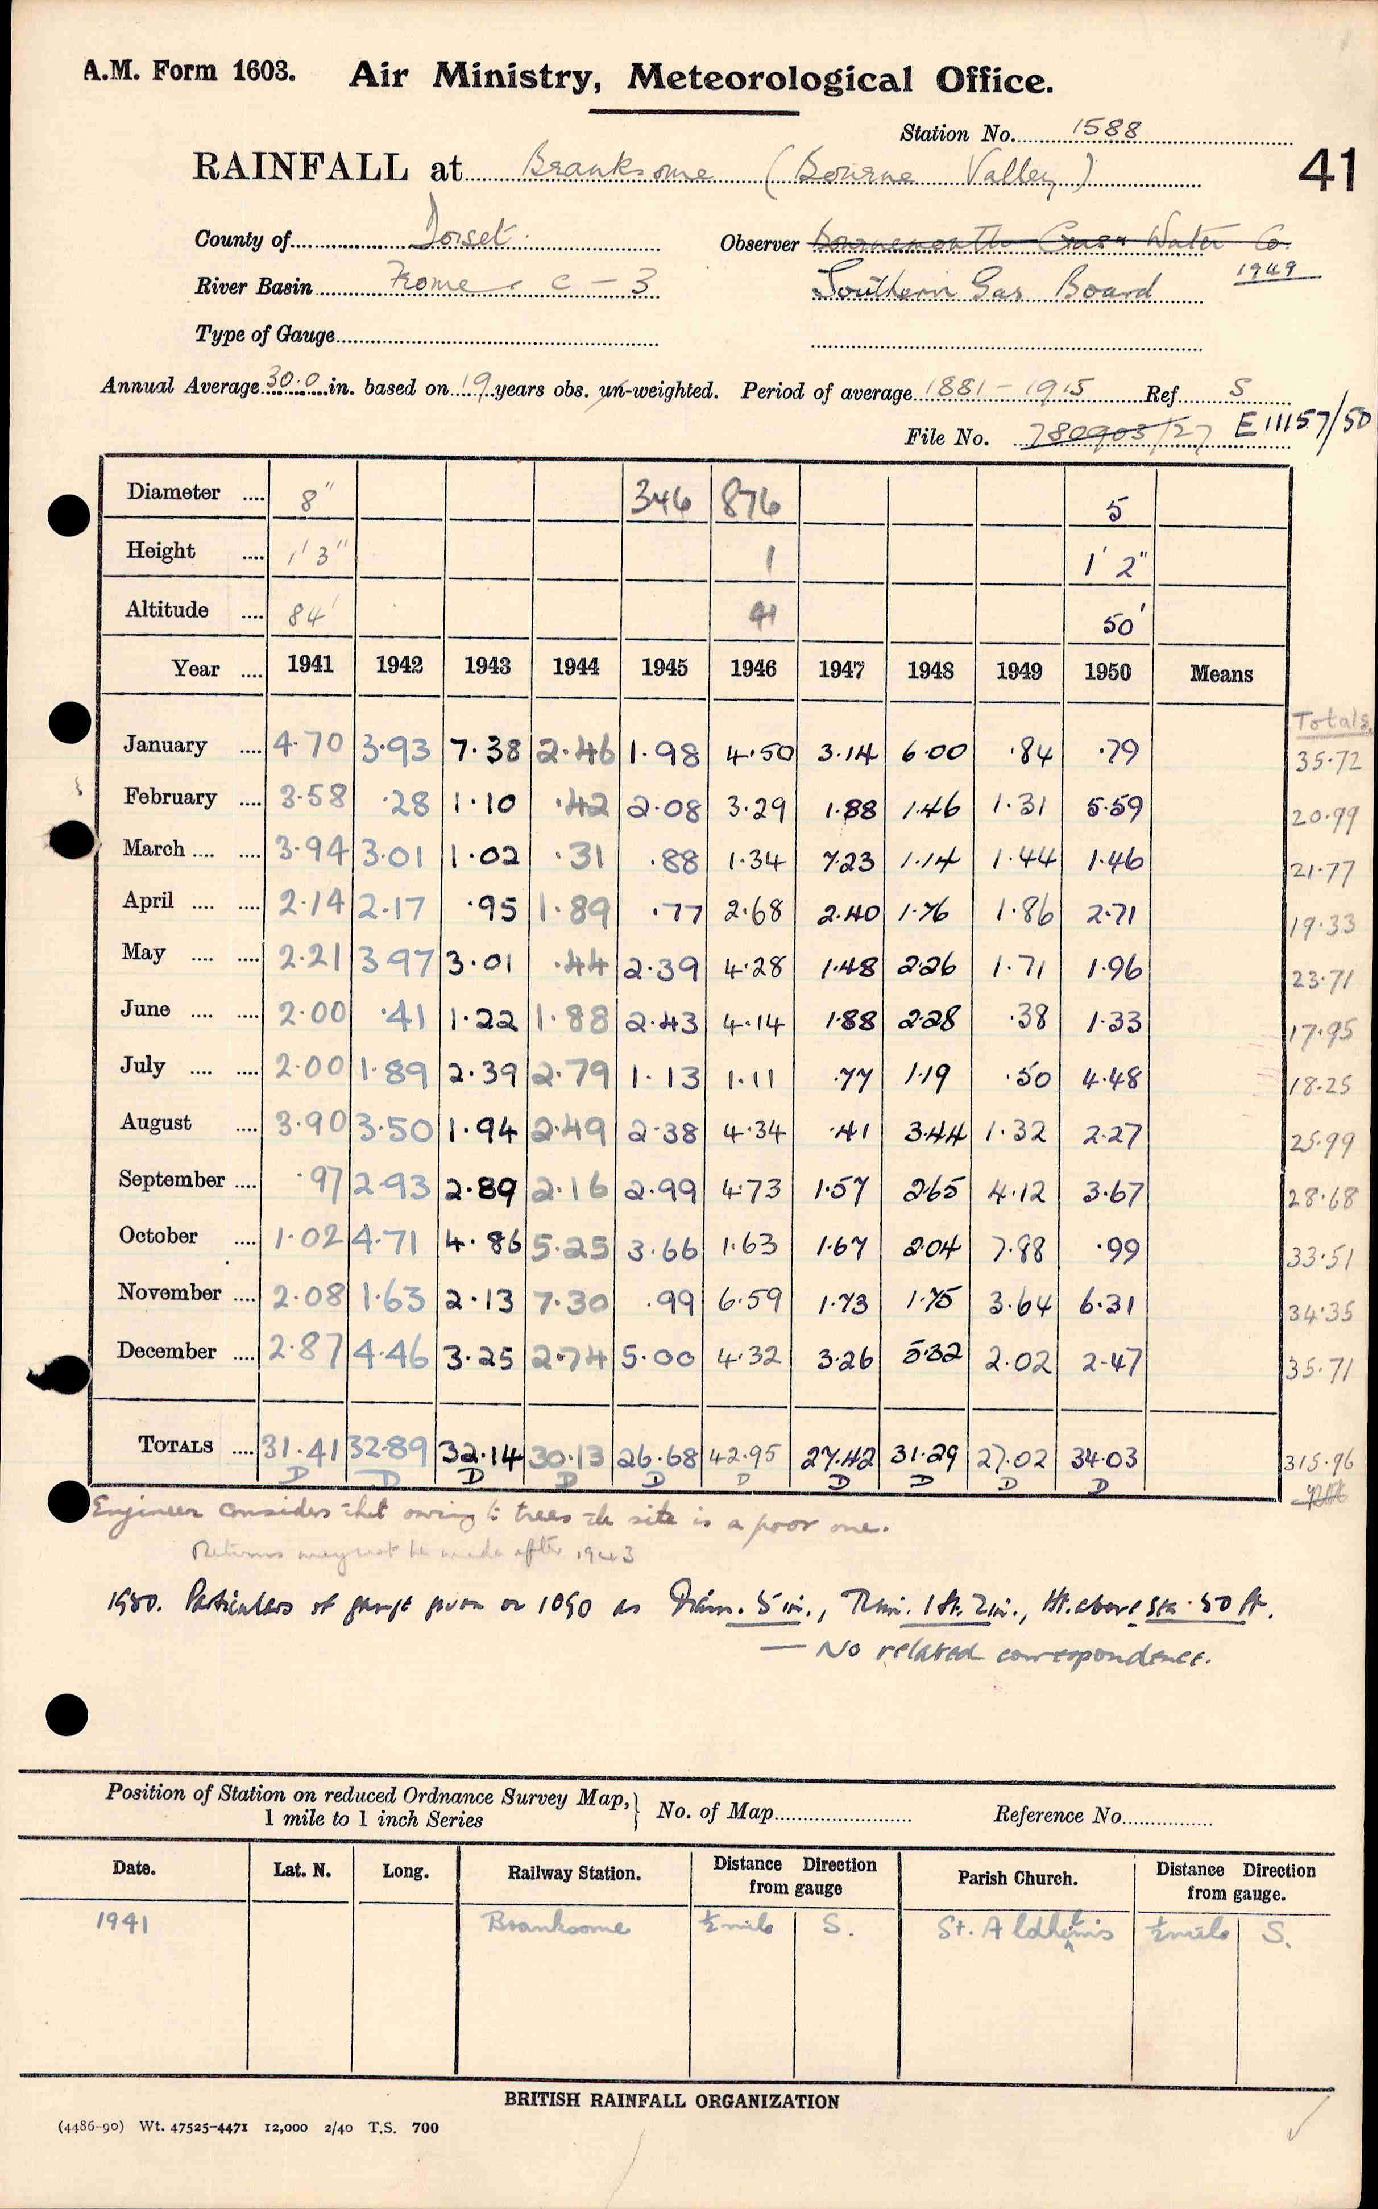 A.M. Form 1603. Air Ministry, Meteorological Office.
Station No. 1588
RAINFALL at Branksome (Bourne Valley)
41
County of Dorset. Observer Bournemouth Gas & Water Co.
River Basin Frome. C - 3 Southern Gas Board 1949
Type of Gauge
Annual Average 30.0 in. based on 19 years obs. un-weighted. Period of average 1881-1915 Ref. S
File No. 780903/27 E11157/50
Diameter .... 8" 346 876 5
Height .... 1' 3" 1 1' 2"
Altitude .... 84' 50'
Year .... 1941 1942 1943 1944 1945 1946 1947 1948 1949 1950 Means
Totals
January .... 4.70 3.93 7.38 2.46 1.98 4.50 3.14 6.00 .84 .79 35.72
February .... 3.58 .28 1.10 .42 2.08 3.29 1.88 1.46 1.31 5.59 20.99
March .... .... 3.94 3.01 1.02 .31 .88 1.34 7.23 1.14 1.44 1.46 21.77
April .... .... 2.14 2.17 .95 1.89 .77 2.68 2.40 1.76 1.86 2.71 19.33
May .... .... 2.21 3.97 3.01 .44 2.39 4.28 1.48 2.26 1.71 1.96 23.71
June .... .... 2.00 .41 1.22 1.88 2.43 4.14 1.88 2.28 .38 1.33 17.95
July .... .... 2.00 1.89 2.39 2.79 1.13 1.11 .77 1.19 .50 4.48 18.25
August .... 3.90 3.50 1.94 2.49 2.38 4.34 .41 3.44 1.32 2.27 25.99
September .... .97 2.93 2.89 2.16 2.99 4.73 1.57 2.65 4.12 3.67 28.68
October .... 1.02 4.71 4.86 5.25 3.66 1.63 1.67 2.04 7.88 .99 33.51
November .... 2.08 1.63 2.13 7.30 .99 6.59 1.73 1.75 3.64 6.31 34.35
December .... 2.87 4.46 3.25 2.74 5.00 4.32 3.26 5.32 2.02 2.47 35.71
TOTALS .... 31.41 32.89 32.14 30.13 26.68 42.95 27.42 31.29 27.02 34.03 315.96
D D D D D D D D D D
Engineer considers that owing to trees the site is a poor one.
Returns may not be made after 1943
1950. Particulars of gauge given on 1090 as Diam. 5 in., Rim. 1 ft. 2 in., Ht. above sea 50 ft.
— No related correspondence.
Position of Station on reduced Ordnance Survey Map, 1 mile to 1 inch Series } No. of Map Reference No.
Date. Lat. N. Long. Railway Station. Distance Direction from gauge Parish Church. Distance Direction from gauge.
1941 Branksome ½ mile S. St. Aldhelm's ½ mile S.
BRITISH RAINFALL ORGANIZATION
(4486-90) Wt. 47525-4471 12,000 2/40 T.S. 700